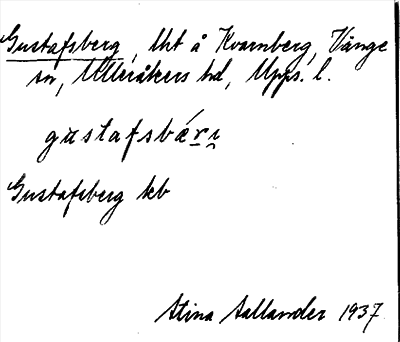 Gustafsberg, lht å Kvarnberg, Vänge
sn, Ulleråkers hd, Upps. l.
gustafsbæ´rı
Gustafsberg kb
Stina Sallander 1937